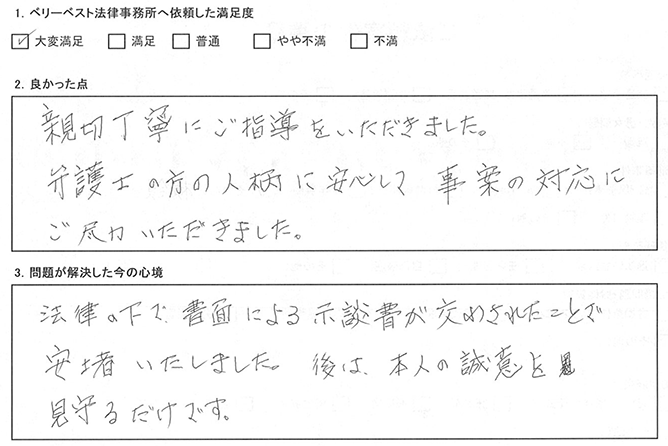 1. ベリーベスト法律事務所へ依頼した満足度
☑ 大変満足 □ 満足 □ 普通 □ やや不満 □ 不満
2. 良かった点
親切丁寧にご指導をいただきました。
弁護士の方の人柄に安心して 事案の対応に
ご尽力いただきました。
3. 問題が解決した今の心境
法律の下で、書面による示談書が交わされたことで
安堵いたしました。後は、本人の誠意を
見守るだけです。